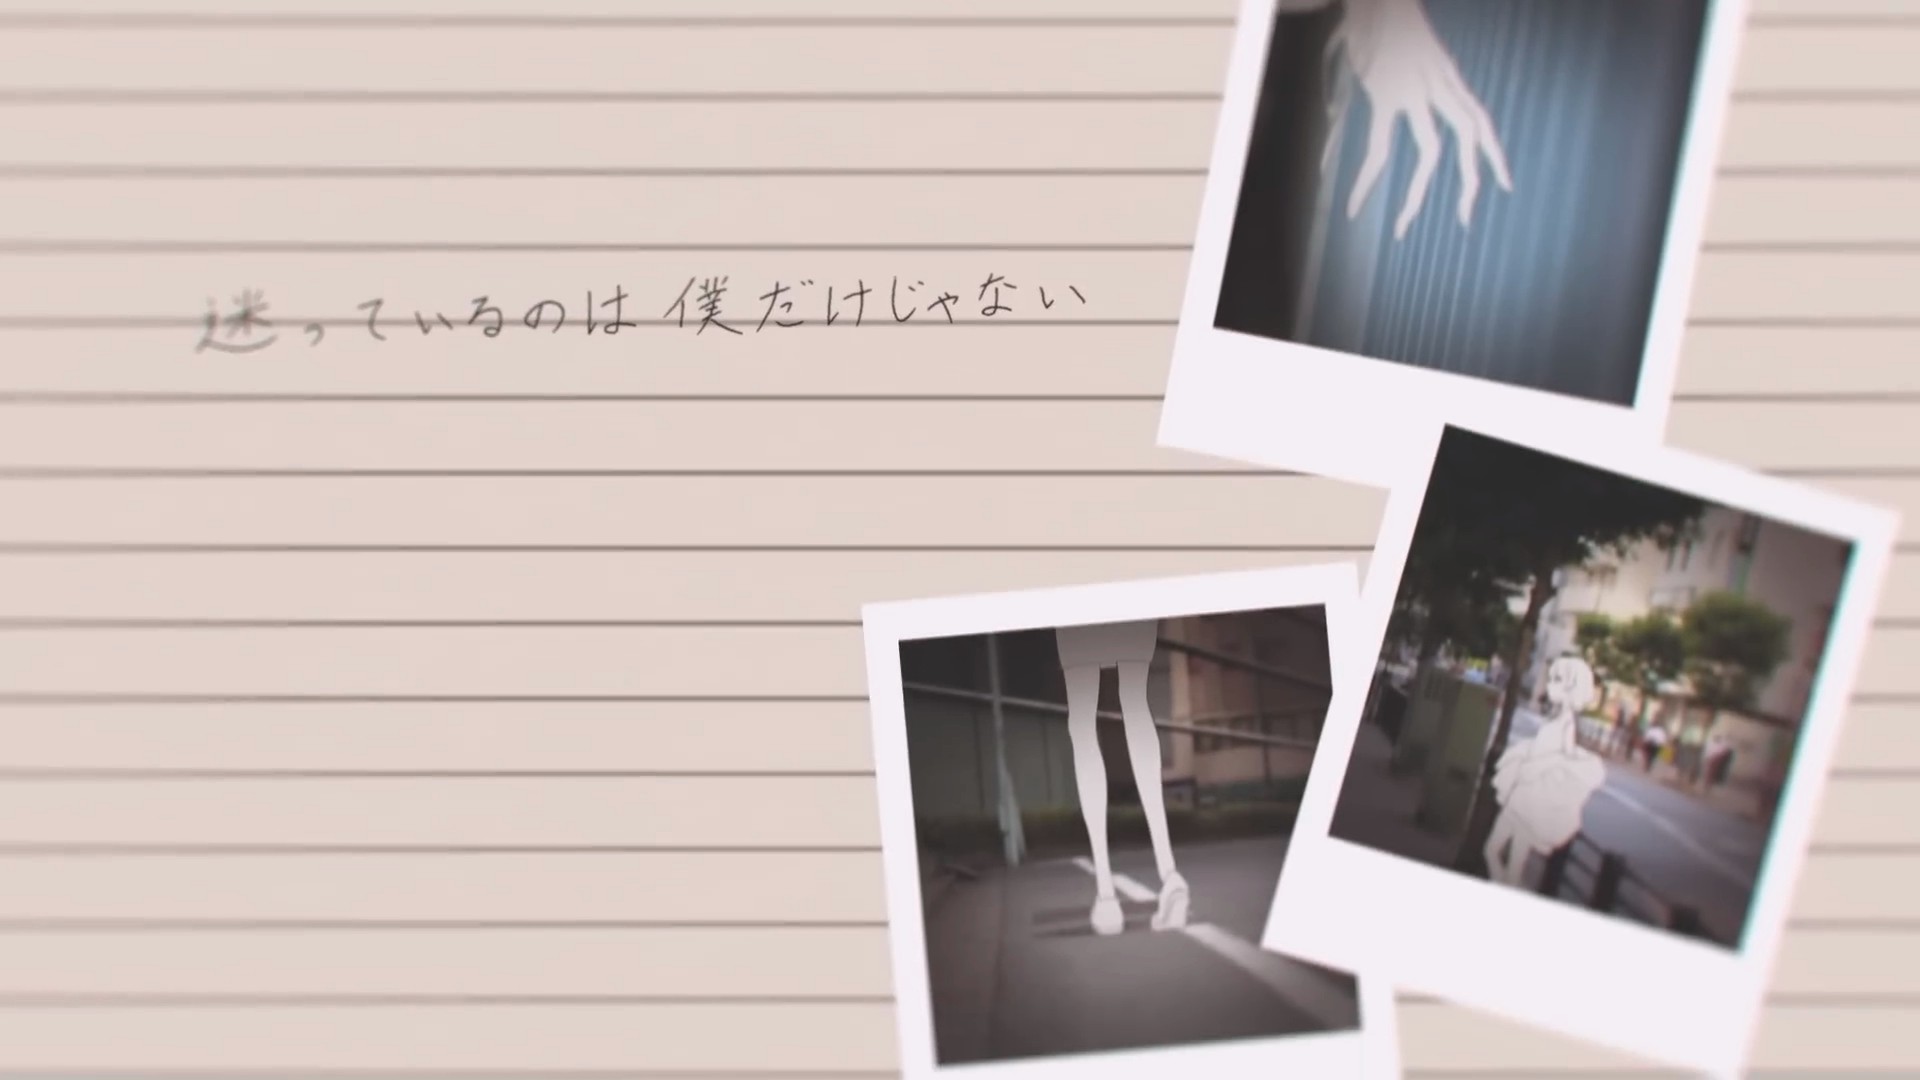 迷っているのは僕だけじゃない